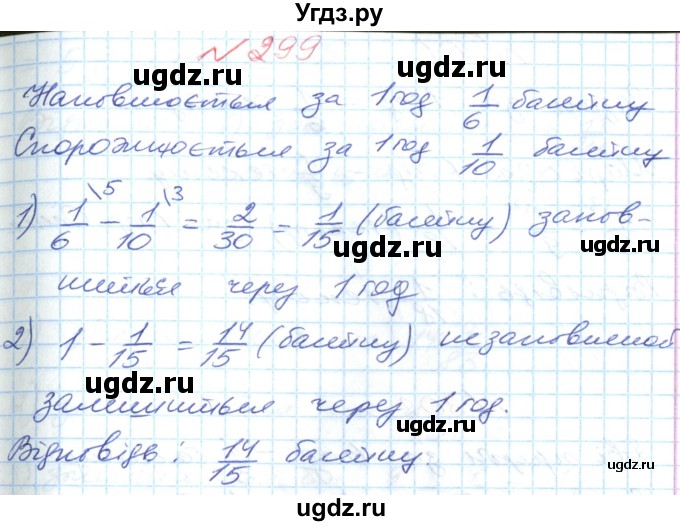 Угдз.ру
№ 299
Наповнюється за 1 год 1/6 басейну
Спорожнюється за 1 год 1/10 басейну
1) 1/6 \5 - 1/10 \3 = 2/30 = 1/15 (басейну) запов-
ниться через 1 год
2) 1 - 1/15 = 14/15 (басейну) незаповненой
залишиться через 1 год.
Відповідь: 14/15 басейну.
ugdz.ru
ugdz.ru
ugdz.ru
ugdz.ru
ugdz.ru
ugdz.ru
ugdz.ru
ugdz.ru
ugdz.ru